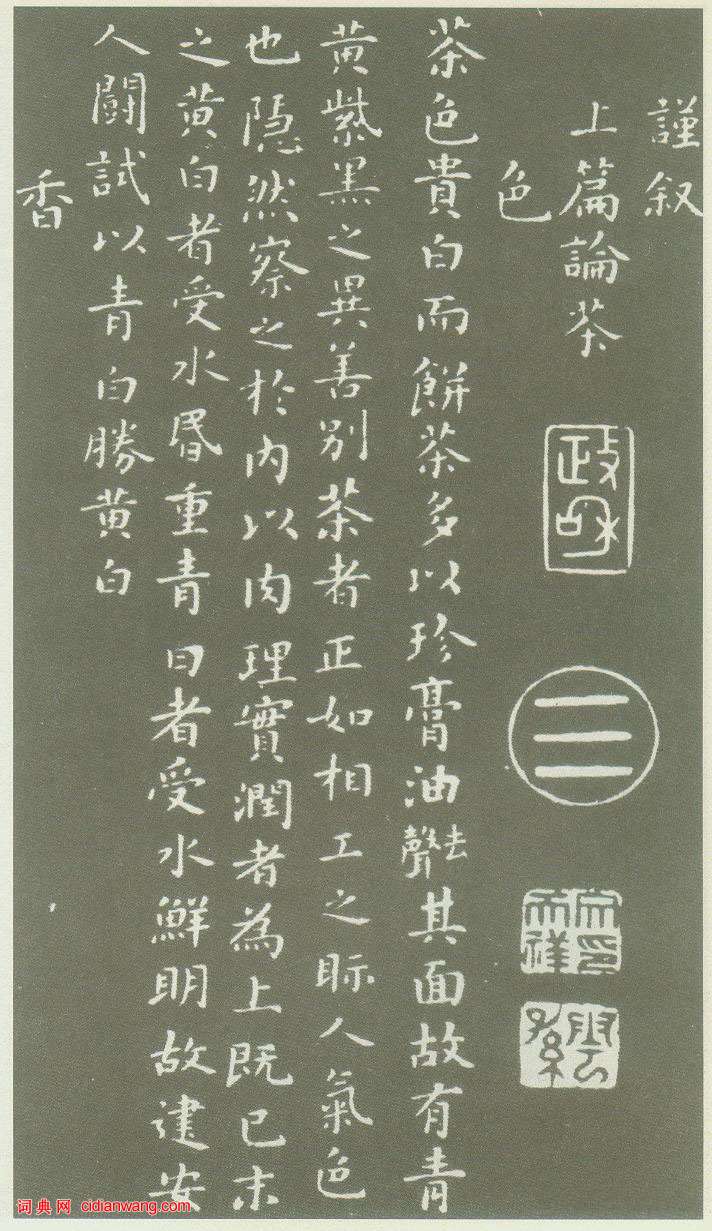 謹叙
上篇論茶
政和
色
茶色貴白而餅茶多以珍膏油去聲其面故有青
黄紫黑之異善别茶者正如相工之眎人氣色
也隱然察之於内以肉理實潤者為上既已末
之黄白者受水昬重青白者受水鮮明故建安
人鬭試以青白勝黄白
香
词典网 cidianwang.com